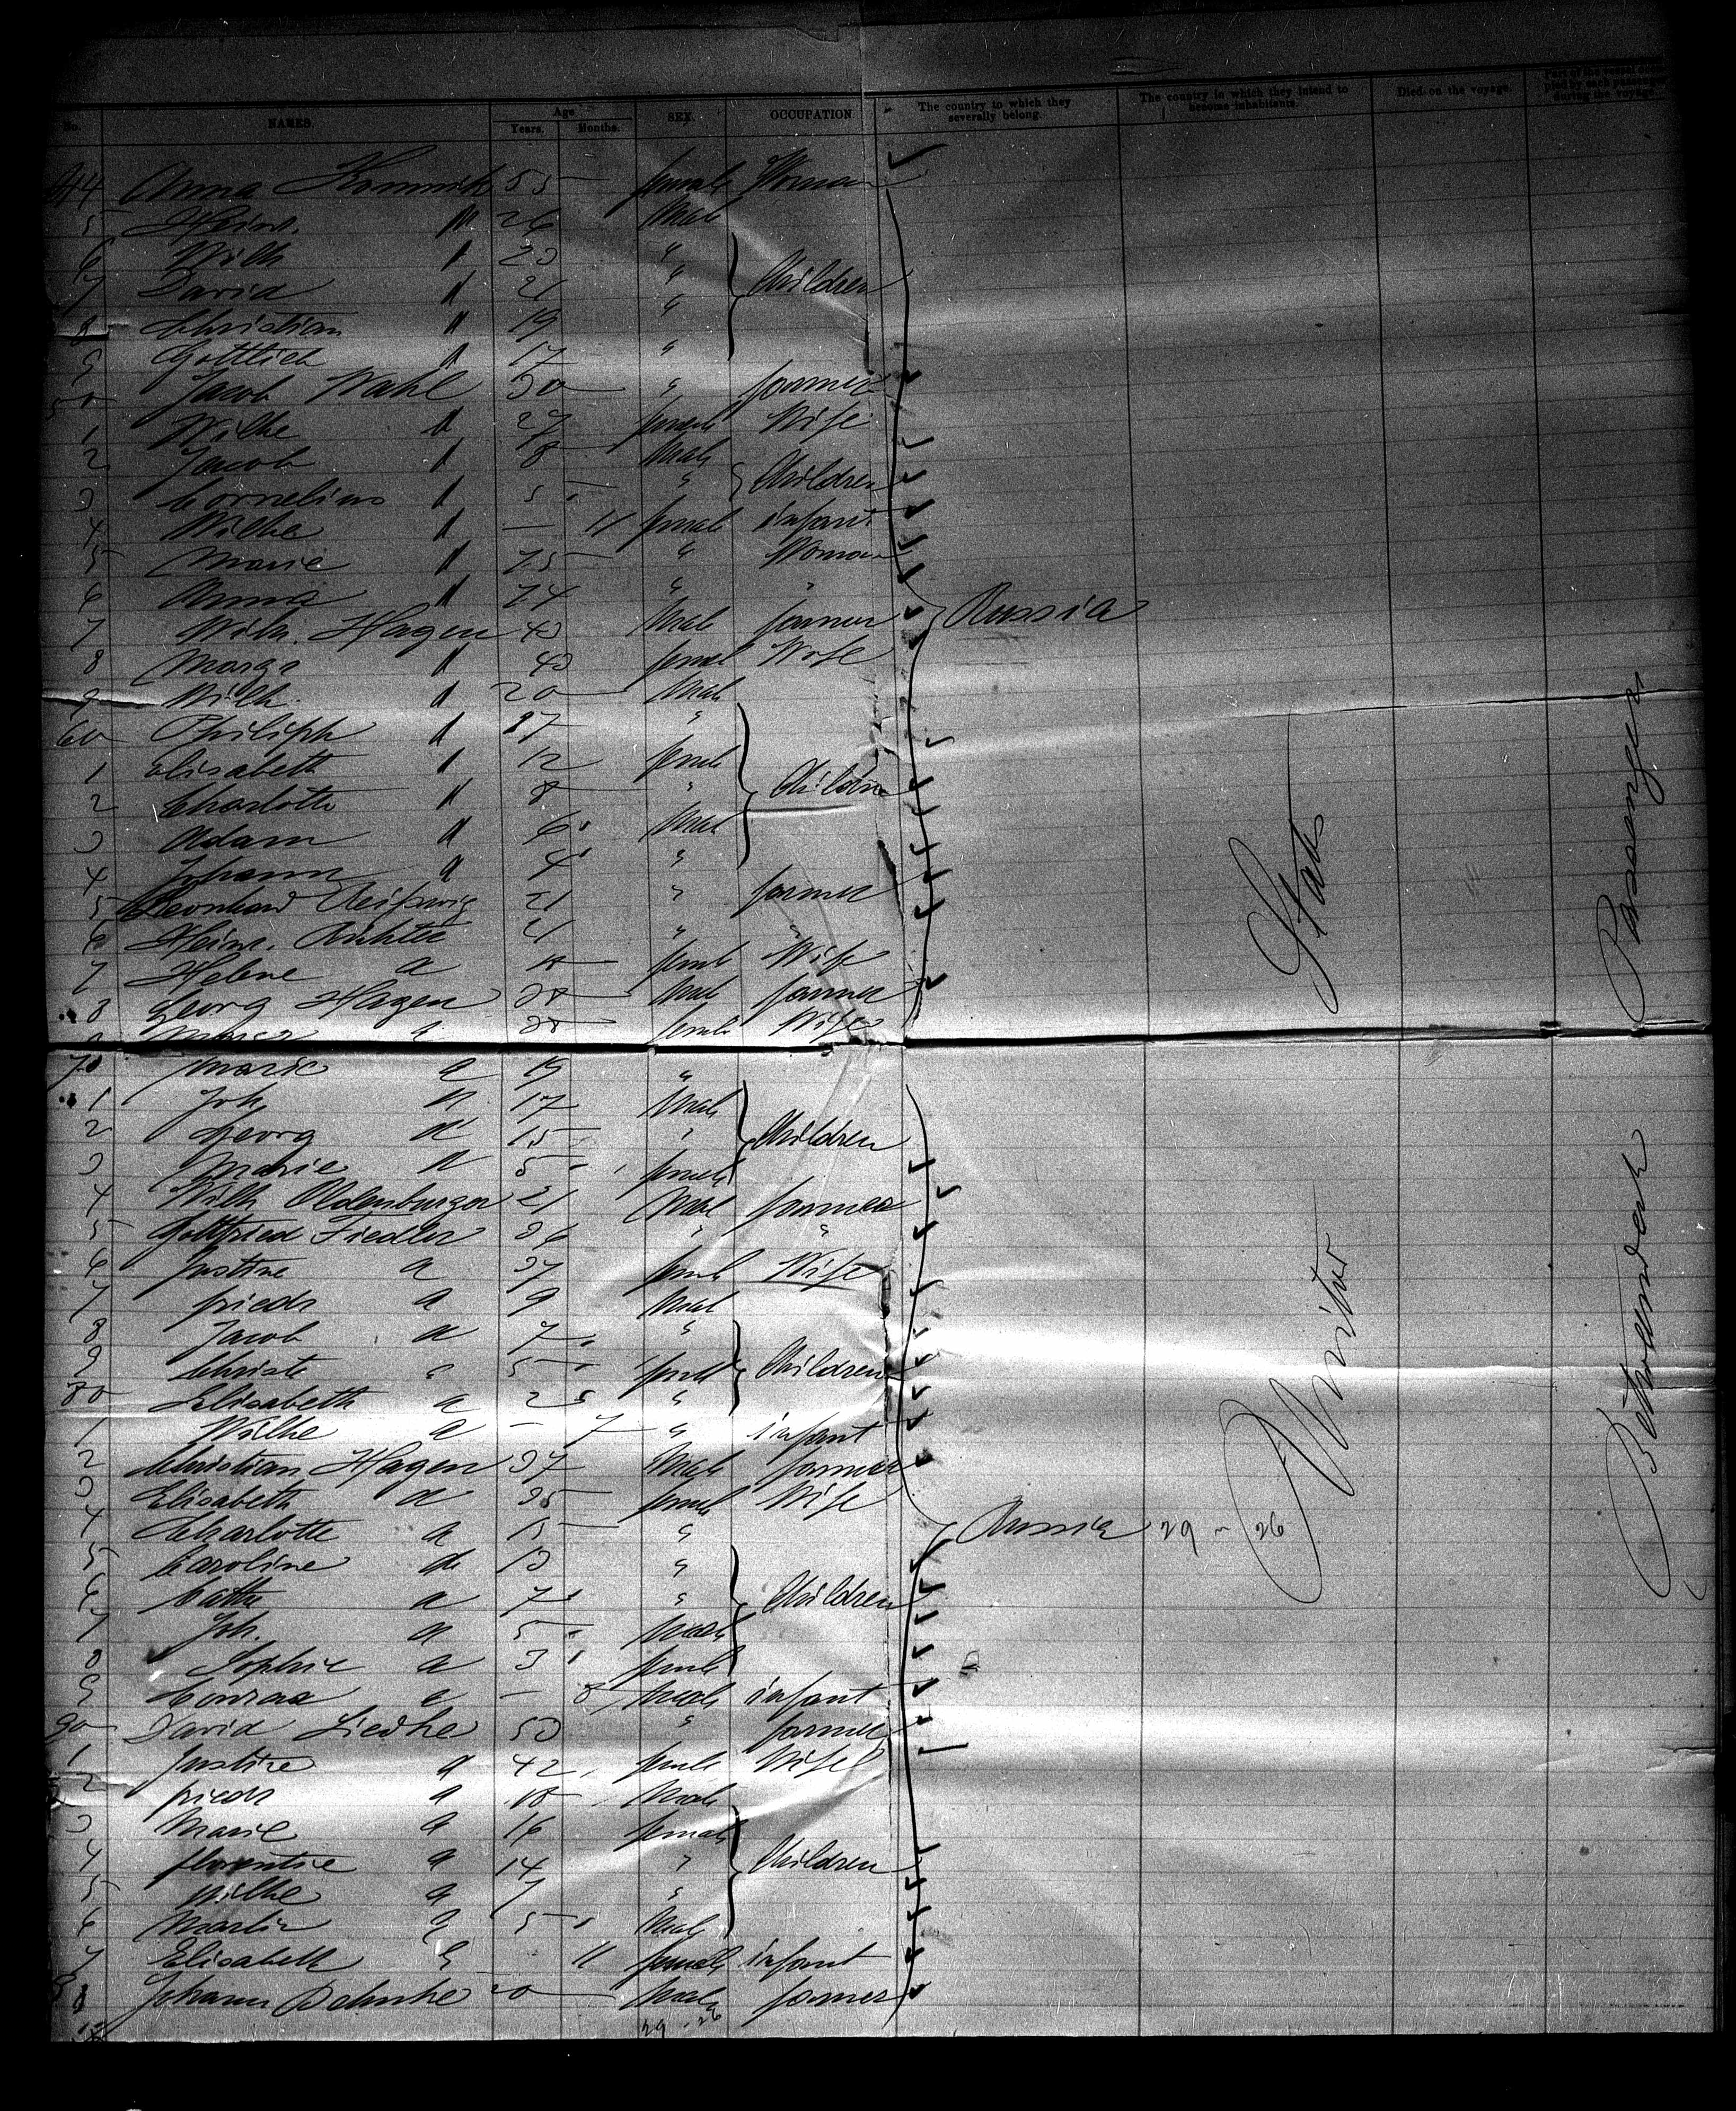 No. NAMES. Age Years. Months. SEX. OCCUPATION. The country to which they severally belong. The country in which they intend to become inhabitants. Died on the voyage. during the voyage.
44 Anna 55 female Woman
5 Heinr. " 26 Male
6 Wilh " 23 "
7 David " 21 " Children
8 Christian " 19 "
9 Gottlieb " 17 "
50 Jacob Wahl 30 " farmer
1 Wilhe " 27 female Wife
2 Jacob " 8 Male
3 Cornelius " 5 " Children
4 Wilhe " — 11 female infant
5 Marie " 75 " Woman
6 Anna " 74 " "
7 Wilh. Hagen 43 Male farmer Russia
8 Marga " 43 female Wife
9 Wilh. " 20 Male
60 Philipp " 17 "
1 Elisabeth " 12 female
2 Charlotte " 8 " Children
3 Adam " 6 Male
4 Johann " 4 "
5 Leonhard 21 " farmer
6 Heinr. Richter 21 " "
7 Helene " 18 female Wife
8 Georg Hagen 38 Male farmer
" 38 female Wife
70 Marie " 19 "
1 Joh " 17 Male
2 Georg " 15 " Children
3 Marie " 5 female
4 Wilh Oldenburger 21 Male farmer
5 Gottfried Fiedler 36 " "
6 Justine " 37 female Wife
7 friedr " 9 Male
8 Jacob " 7 "
9 Christe " 5 female Children
80 Elisabeth " 2 "
1 Wilhe " — 7 " infant
2 Christian Hagen 37 Male farmer
3 Elisabeth " 35 female Wife
4 Charlotte " 15 " Russia 29 - 26
5 Caroline " 13 "
6 Cathe " 7 " Children
7 Joh. " 5 Male
8 Sophie " 3 female
9 Conrad " — 8 Male infant
90 David Liedke 53 " farmer
1 Justine " 42 female Wife
2 friedr " 18 Male
3 Marie " 16 female
4 florentine " 14 " Children
5 Wilhe " 7 "
6 Martin " 5 Male
7 Elisabeth " 11 female infant
8 Johann 20 Male farmer
29 - 26
United States
Between deck Passengers